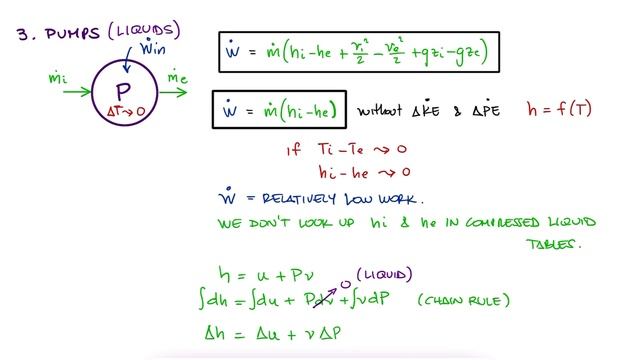 3. PUMPS (LIQUIDS)
Ẇin
ṁi
ṁe
P
ΔT → 0
Ẇ = ṁ(hi-he + vi²/2 - ve²/2 + gzi-gze)
Ẇ = ṁ(hi-he) without ΔKE & ΔPE h = f(T)
if Ti-Te → 0
hi-he → 0
Ẇ = RELATIVELY LOW WORK.
WE DON'T LOOK UP hi & he IN COMPRESSED LIQUID
TABLES.
h = u + Pv (LIQUID)
0
∫dh = ∫du + Pdv + ∫vdP (CHAIN RULE)
Δh = Δu + vΔP